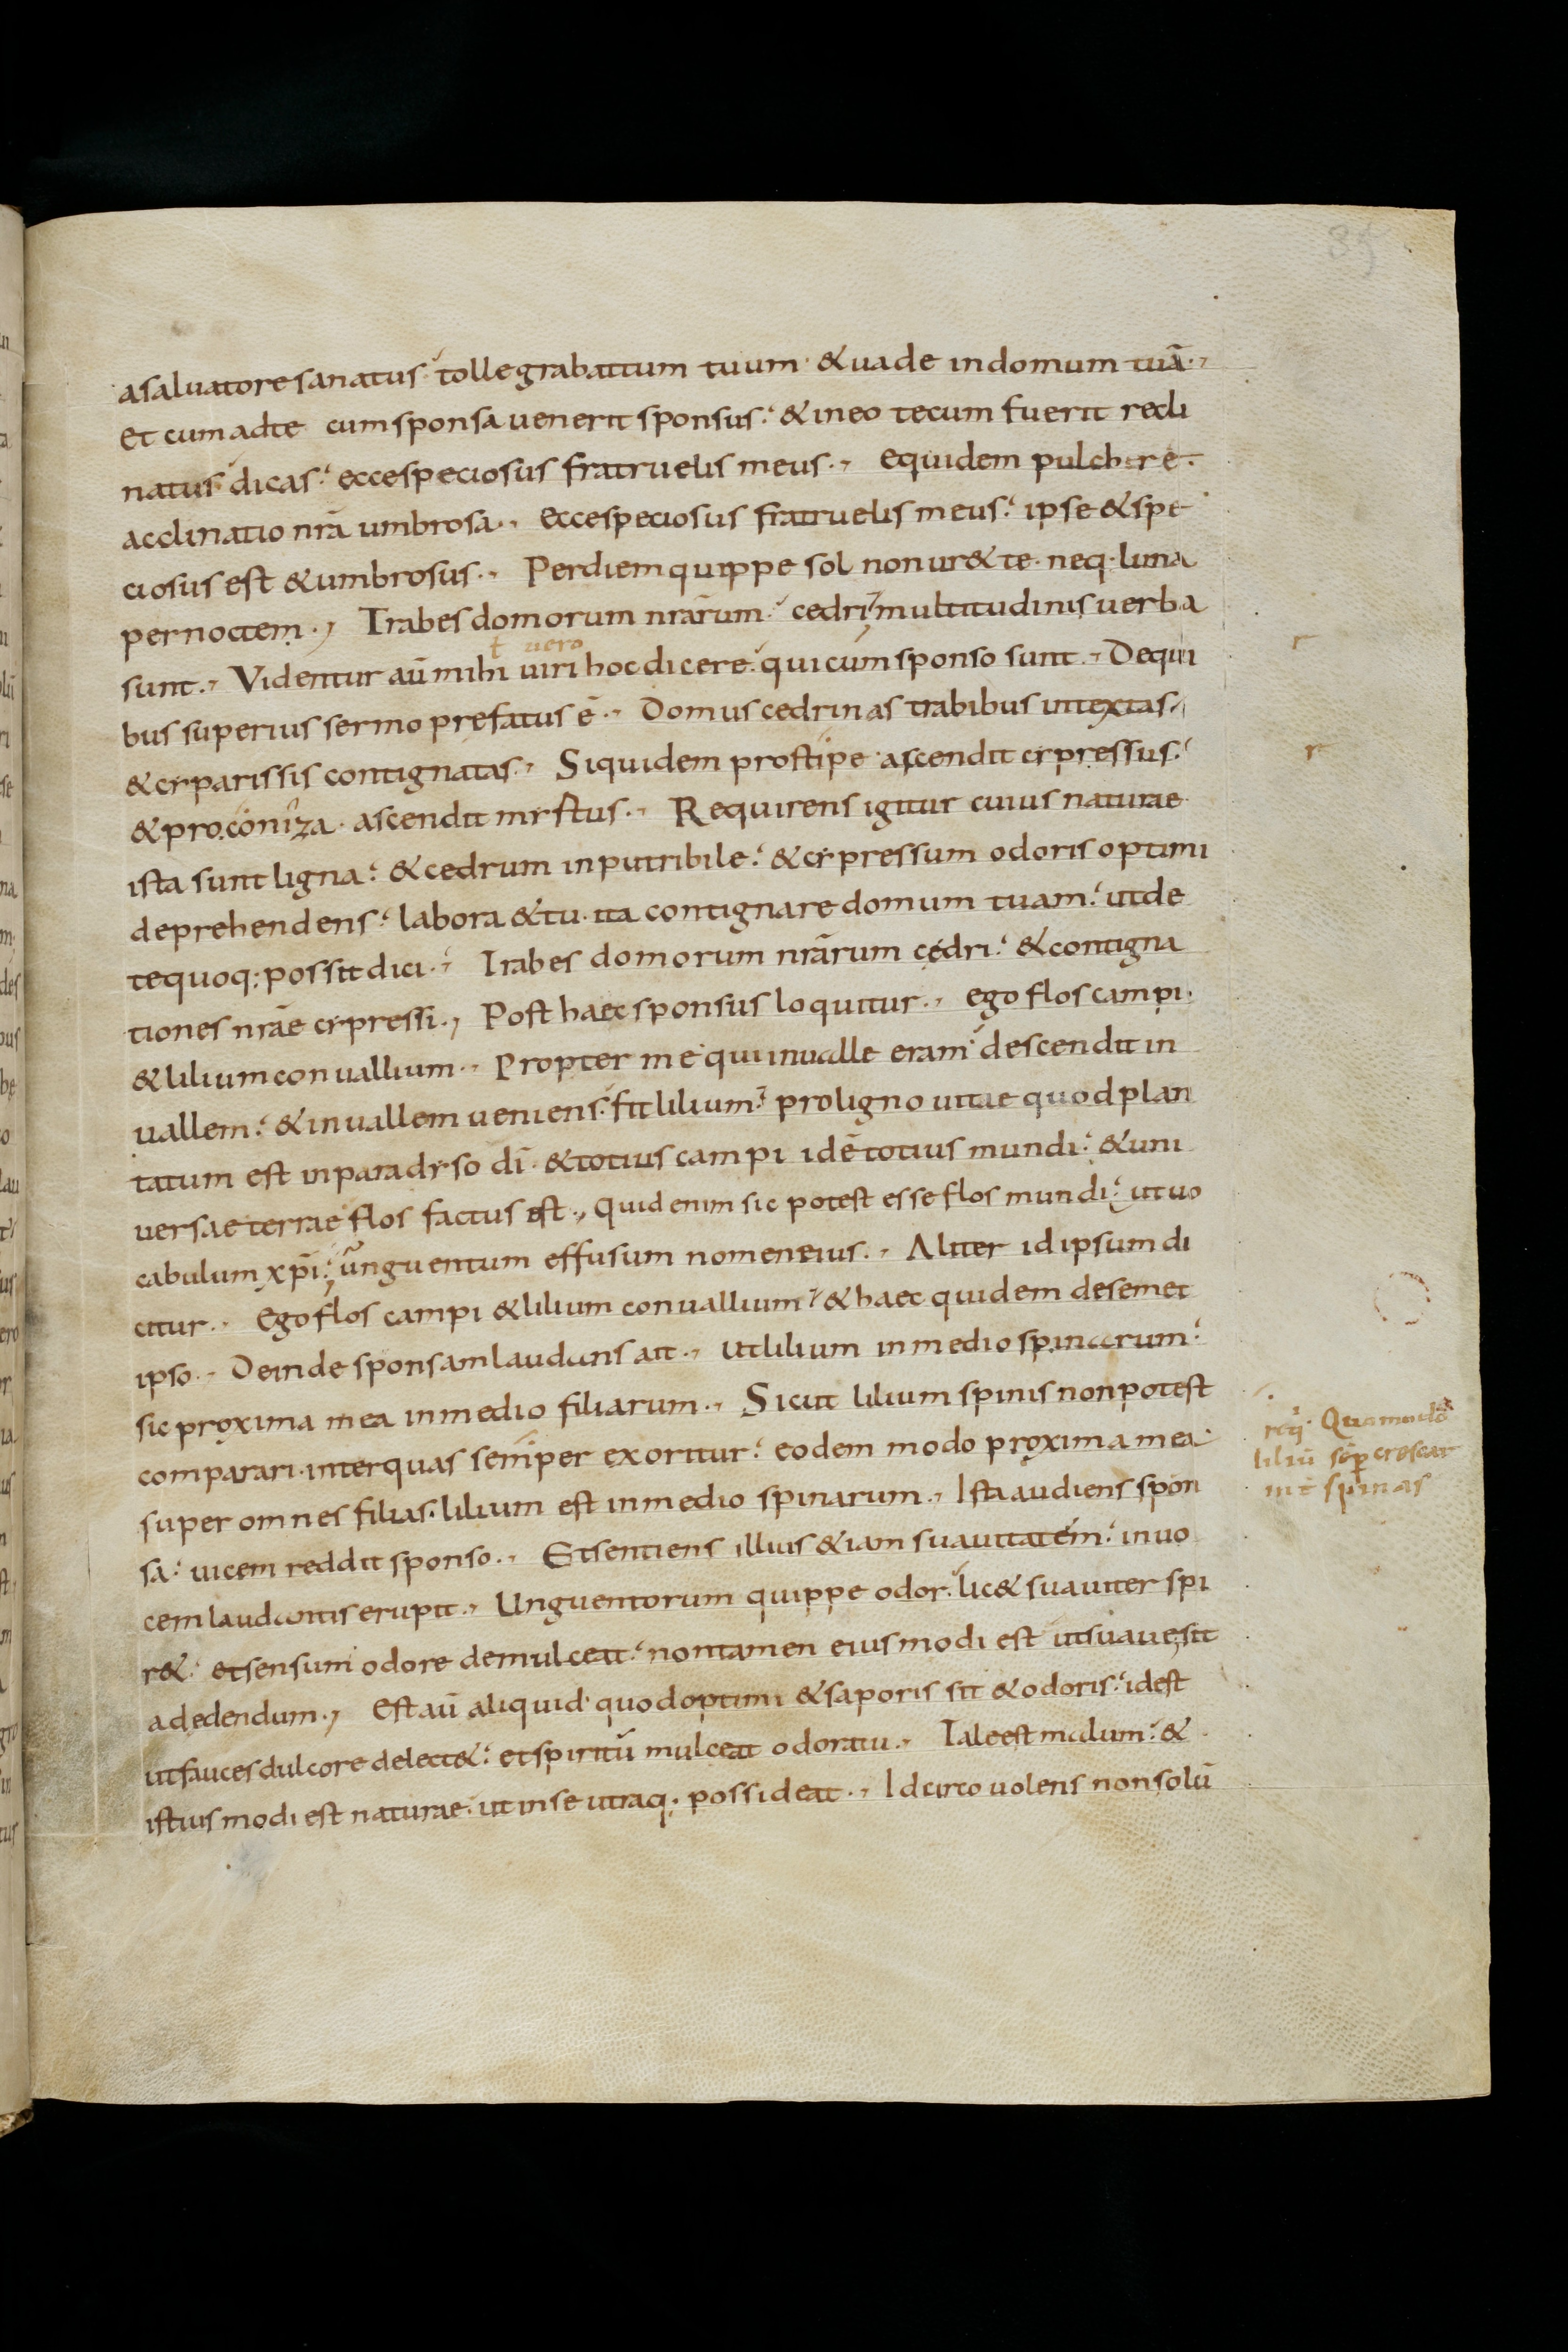 85
a saluatore sanatus tolle grabattum tuum · & uade in domum tuā ·,
et cum ad te cum sponsa uenerit sponsus: & in eo tecum fuerit recli
natus dicas: ecce speciosus fratruelis meus ·, equidem pulchre ·
acclinatio nr̄a umbrosa ·, ecce speciosus fratruelis meus: ipse & spe
ciosus est & umbrosus ·, Per diem quippe sol non ur& te · neq· luna
per noctem ·, Trabes domorum nrārum: cedri; multitudinis uerba
ł uero
sunt ·, Videntur aū mihi uiri hoc dicere: qui cum sponso sunt ·, De qui
bus superius sermo prefatus ē ·, Domus cedrinas trabibus intextas ·
& cyparissis contignatas ·, Siquidem pro stipe · ascendit cypressus:
& pro coniza · ascendit myrtus ·, Requirens igitur cuius naturae
ista sunt ligna: & cedrum inputribile: & cypressum odoris optimi
deprehendens: labora & tu · ita contignare domum tuam: ut de
te quoq; possit dici ·, Trabes domorum nrārum cedri: & contigna
tiones nrāe cypressi ·, Post haec sponsus loquitur ·, ego flos campi ·
& lilium conuallium ·, Propter me qui in ualle eram descendit in
uallem: & in uallem ueniens: fit lilium: pro ligno uitae quod plan
tatum est in paradyso dī · & totius campi id ē totius mundi: & uni
uersae terrae flos factus est ·, Quid enim sic potest esse flos mundi: ut uo
cabulum xp̄i: unguentum effusum nomen eius ·, Aliter id ipsum di
citur ·, Ego flos campi & lilium conuallium: & haec quidem de semet
ipso ·, Deinde sponsam laudans ait ·, Ut lilium in medio spinarum:
sic proxima mea in medio filiarum ·, Sicut lilium spinis non potest
comparari · inter quas semper exoritur: eodem modo proxima mea ·
super omnes filias · lilium est in medio spinarum ·, Ista audiens spon
sa: uicem reddit sponso ·, Et sentiens illius &iam suauitatem: in uo
cem laudantis erupit ·, Unguentorum quippe odor · lic& suauiter spi
r&: et sensum odore demulceat: non tamen eiusmodi est ut suaue sit
ad edendum ·, Est aū aliquid quod optimi & saporis sit & odoris: id est
ut fauces dulcore delect&: et spiritū mulceat odoratu ·, Tale est malum: &
istius modi est naturae · ut in se utraq; possideat ·, Idcirco uolens non solū
r
r
Quomodo
liliū sēp crescat
int spinas